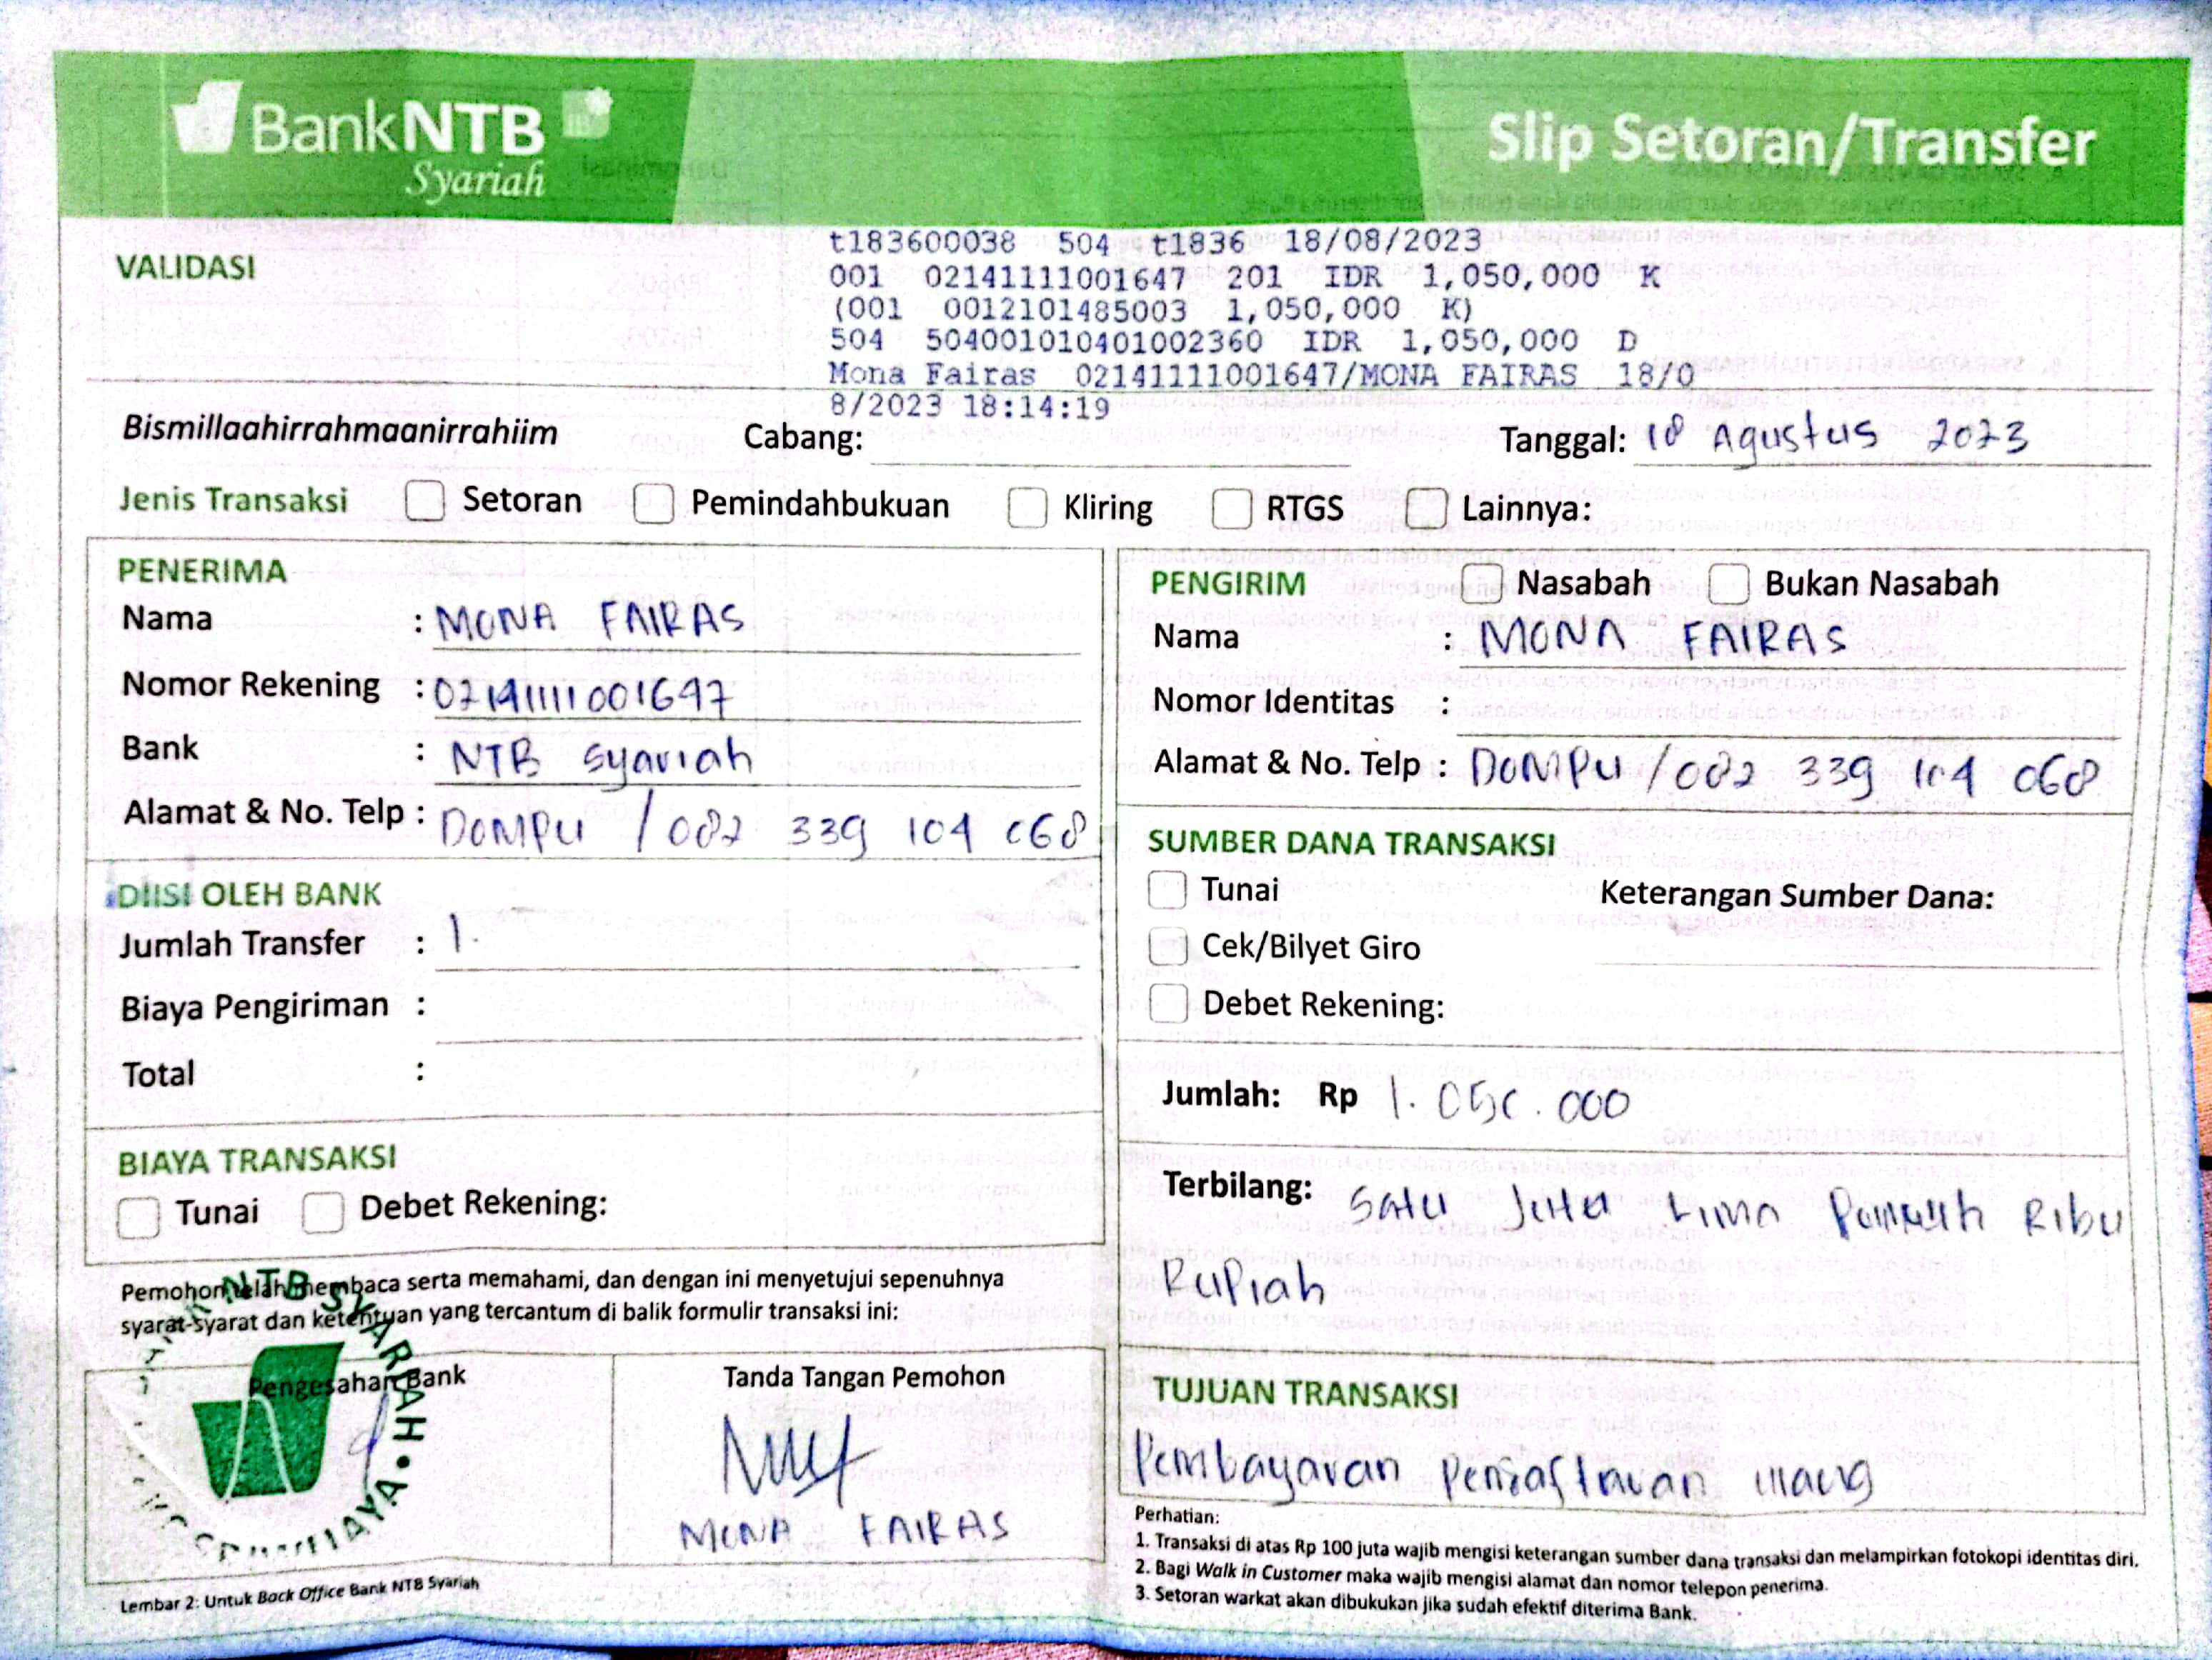 BankNTB
Syariah
Slip Setoran/Transfer
VALIDASI
t183600038 504 t1836 18/08/2023
001 02141111001647 201 IDR 1,050,000 K
(001 0012101485003 1,050,000 K)
504 504001010401002360 IDR 1,050,000 D
Mona Fairas 02141111001647/MONA FAIRAS 18/0
8/2023 18:14:19
Bismillaahirrahmaanirrahiim
Cabang:
Tanggal: 18 Agustus 2023
Jenis Transaksi Setoran Pemindahbukuan Kliring RTGS Lainnya:
PENERIMA
Nama : MONA FAIRAS
Nomor Rekening : 02141111001647
Bank : NTB Syariah
Alamat & No. Telp : DOMPU / 082 339 104 068
DIISI OLEH BANK
Jumlah Transfer : 1.
Biaya Pengiriman :
Total :
BIAYA TRANSAKSI
Tunai Debet Rekening:
Pemohon telah membaca serta memahami, dan dengan ini menyetujui sepenuhnya
syarat-syarat dan ketentuan yang tercantum di balik formulir transaksi ini:
Pengesahan Bank
NTB SYARIAH
Tanda Tangan Pemohon
MONA FAIRAS
Lembar 2: Untuk Back Office Bank NTB Syariah
PENGIRIM Nasabah Bukan Nasabah
Nama : MONA FAIRAS
Nomor Identitas :
Alamat & No. Telp : DOMPU / 082 339 104 068
SUMBER DANA TRANSAKSI
Tunai Keterangan Sumber Dana:
Cek/Bilyet Giro
Debet Rekening:
Jumlah: Rp 1.050.000
Terbilang: Satu Juta Lima Puluh Ribu
Rupiah
TUJUAN TRANSAKSI
Pembayaran Pendaftaran
Perhatian:
1. Transaksi di atas Rp 100 juta wajib mengisi keterangan sumber dana transaksi dan melampirkan fotokopi identitas diri.
2. Bagi Walk in Customer maka wajib mengisi alamat dan nomor telepon penerima.
3. Setoran warkat akan dibukukan jika sudah efektif diterima Bank.